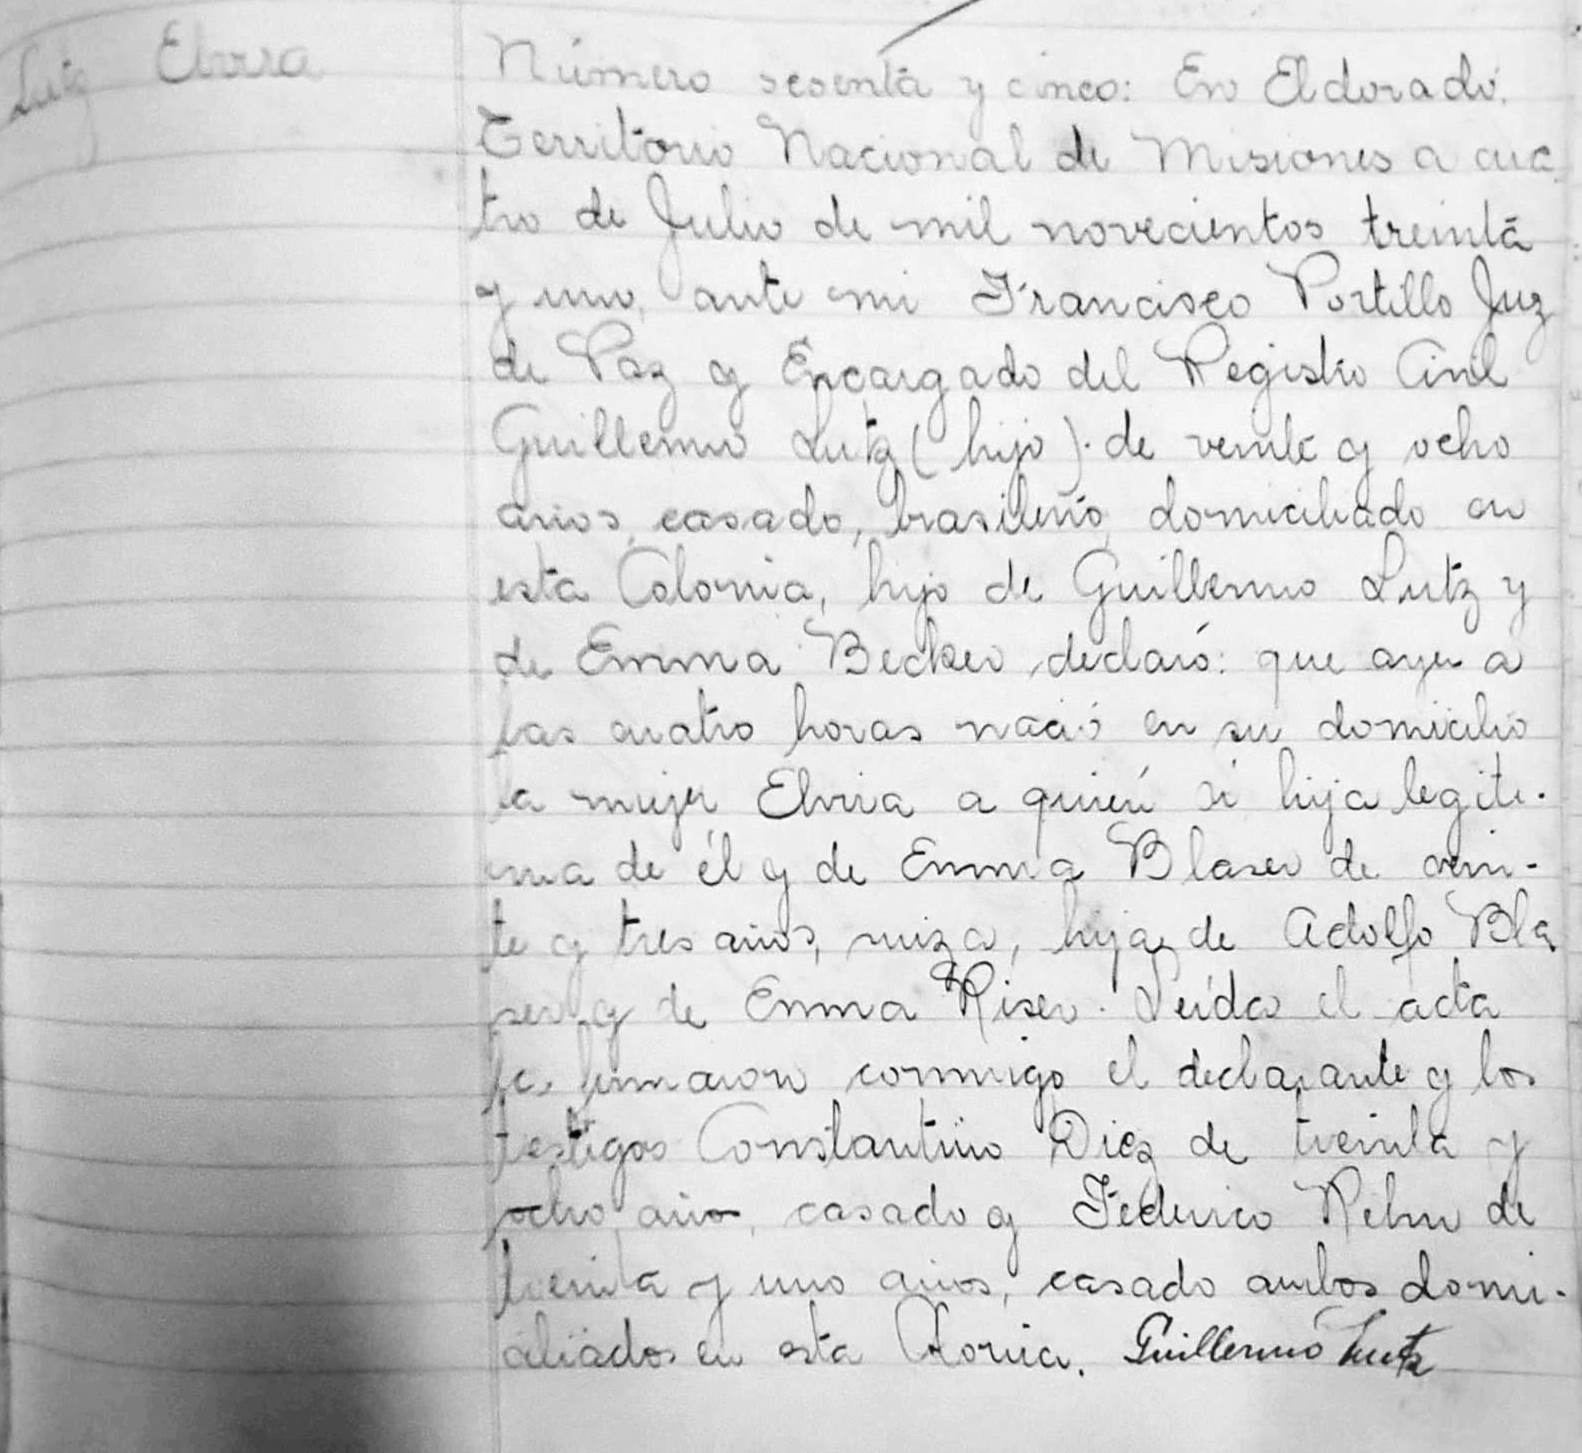 Lutz Elvira
Número sesenta y cinco: En Eldorado.
Territorio Nacional de Misiones a cua-
tro de Julio de mil novecientos treinta
y uno, ante mi Francisco Portillo Juz
de Paz y Encargado del Registro Civil
Guillermo Lutz (hijo). de veinte y ocho
años, casado, brasileño, domiciliado en
esta Colonia, hijo de Guillermo Lutz y
de Emma Becker, declaró: que ayer a
las cuatro horas nació en su domicilio
la mujer Elvira a quién si hija legiti-
ma de él y de Emma Blaser de vein-
te y tres años, suiza, hija de Adolfo Bla
ser y de Emma Riser. Leída el acta
la firmaron conmigo el declarante y los
testigos Constantino Diez de treinta y
ocho años, casado y Federico Rehn de
treinta y uno años, casado ambos domi-
ciliados en esta Colonia. Guillermo Lutz